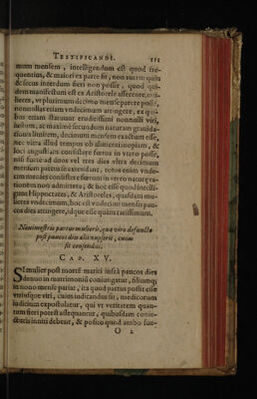 TESTIFICANDI.
mum mensem, intelligendum est quod fre-
quentius, & maiori ex parte fit, non autem quin
& secus interdum fieri non possit, quod qui-
dem manifestum est ex Aristotele asserente,
lieres, vt plurimum decimo mense parere posse,
nonnullas etiam vndecimum attingere, ex qui-
bus etiam statuunt eruditissimi nonnulli viri,
iustum, ac maximè secundum naturam grauida-
tionis limitem, decimum mensem exactum esse,
nec vltra illud tempus ob alimenti inopiam, &
loci angustiam consistere foetum in vtero posse,
nisi fortè ad duos vel tres dies vltra decimum
mensem partus sit extendendus, totos enim vnde-
cim menses consistere foetum in vtero naturæ
non admittere; & hoc esse quod intelli-
gunt Hippocrates, & Aristoteles, quasdam mu-
lieres vndecimum, hoc est vndecimi mensis pau-
cos dies attingere, idque esse quàm rarissimum.
Nouimestris partus mulieris, quæ viro defuncto
post paucos dies alij nupserit, cuius
sit censendus.
CAP. XV.
SI mulier post mortem mariti infrà paucos dies
denuo in matrimonium coniungatur, filiumque
in nono mense pariat, ita quod partus possit esse
vtriusque viri, cuius iudicandus sit, medicorum
iudicium expostulatur, qui vt veritatem quan-
tum fieri potest assequantur, quibusdam
inniti debent, & posito quod ambo
O 2